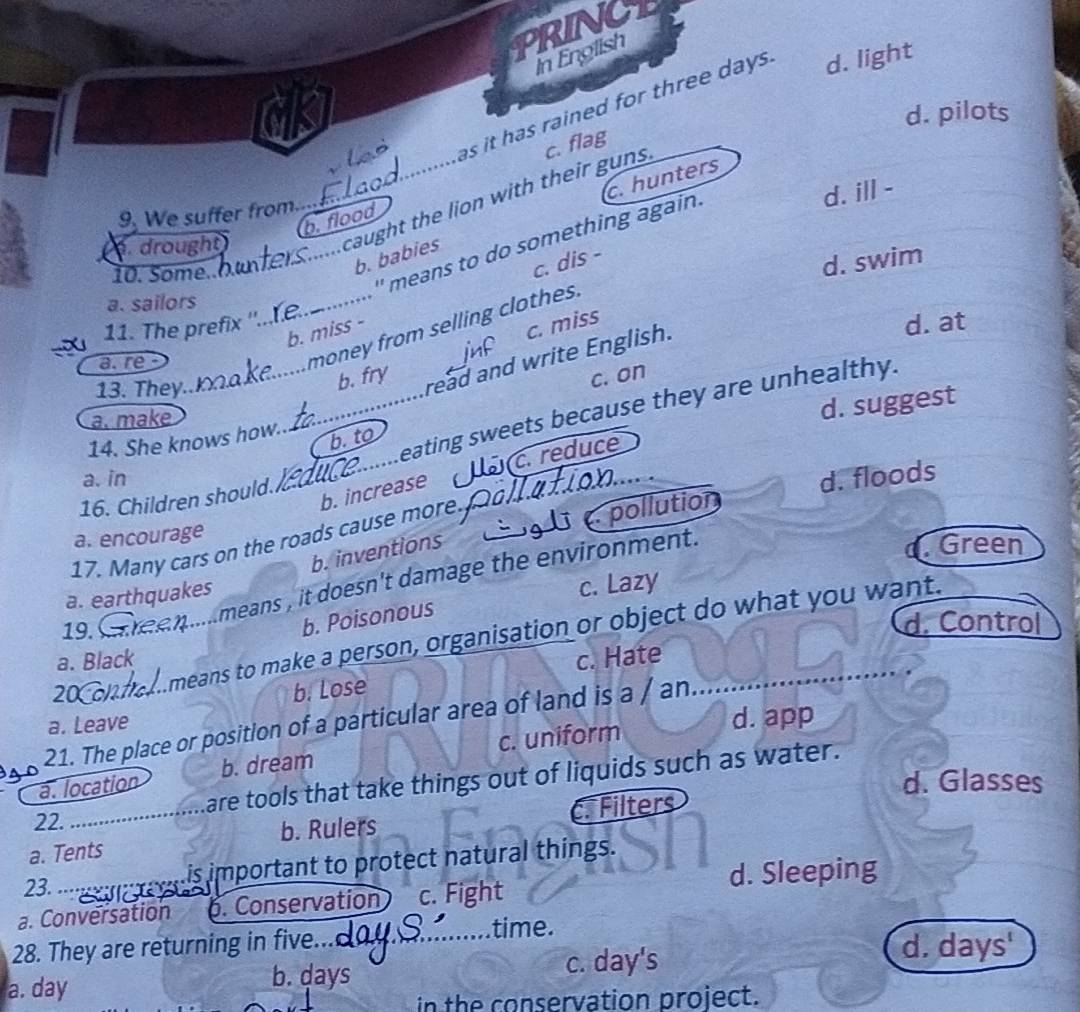 PRINCE
In English
MK
9. We suffer from....Flood..........as it has rained for three days.
a. drought b. flood c. flag d. light
10. Some..hunters......caught the lion with their guns.
a. sailors b. babies c. hunters d. pilots
11. The prefix "...re..........." means to do something again.
a. re - b. miss - c. dis - d. ill -
13. They..make......money from selling clothes.
a. make b. fry c. miss d. swim
inf
14. She knows how..to................read and write English.
a. in b. to c. on d. at
16. Children should.reduce.......eating sweets because they are unhealthy.
a. encourage b. increase c. reduce d. suggest
يقلل
17. Many cars on the roads cause more.pollution.....
a. earthquakes b. inventions c. pollution d. floods
تلوث
19. Green.....means , it doesn't damage the environment.
a. Black b. Poisonous c. Lazy d. Green
20 Control..means to make a person, organisation or object do what you want.
a. Leave b. Lose c. Hate d. Control
21. The place or position of a particular area of land is a / an.......................
a. location b. dream c. uniform d. app
22. ..................are tools that take things out of liquids such as water.
a. Tents b. Rulers c. Filters d. Glasses
23. ..................is important to protect natural things.
الحفاظ على البيئة
a. Conversation b. Conservation c. Fight d. Sleeping
28. They are returning in five...days'...........time.
a. day b. days c. day's d. days'
in the conservation project.
PRINCE
In English